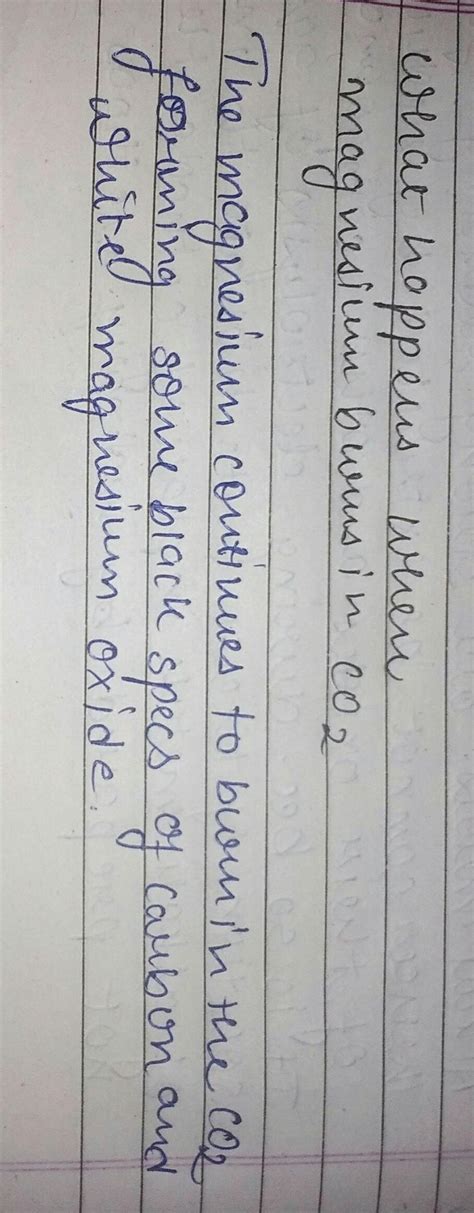 what happens when
magnesium burns in CO2
The magnesium continues to burn in the CO2
forming some black specs of carbon and
white magnesium oxide.